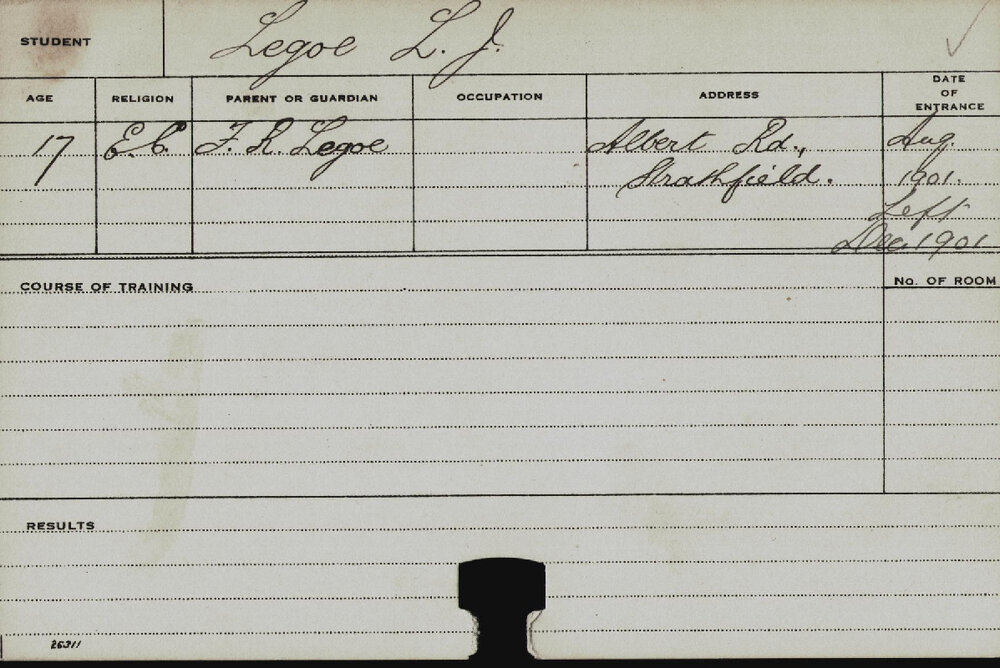 STUDENT Legoe L. J.
AGE RELIGION PARENT OR GUARDIAN OCCUPATION ADDRESS DATE OF ENTRANCE
17 E.C. F. R. Legoe Albert Rd., Aug.
Strathfield. 1901.
Left
Dec. 1901
COURSE OF TRAINING No. OF ROOM
RESULTS
26311